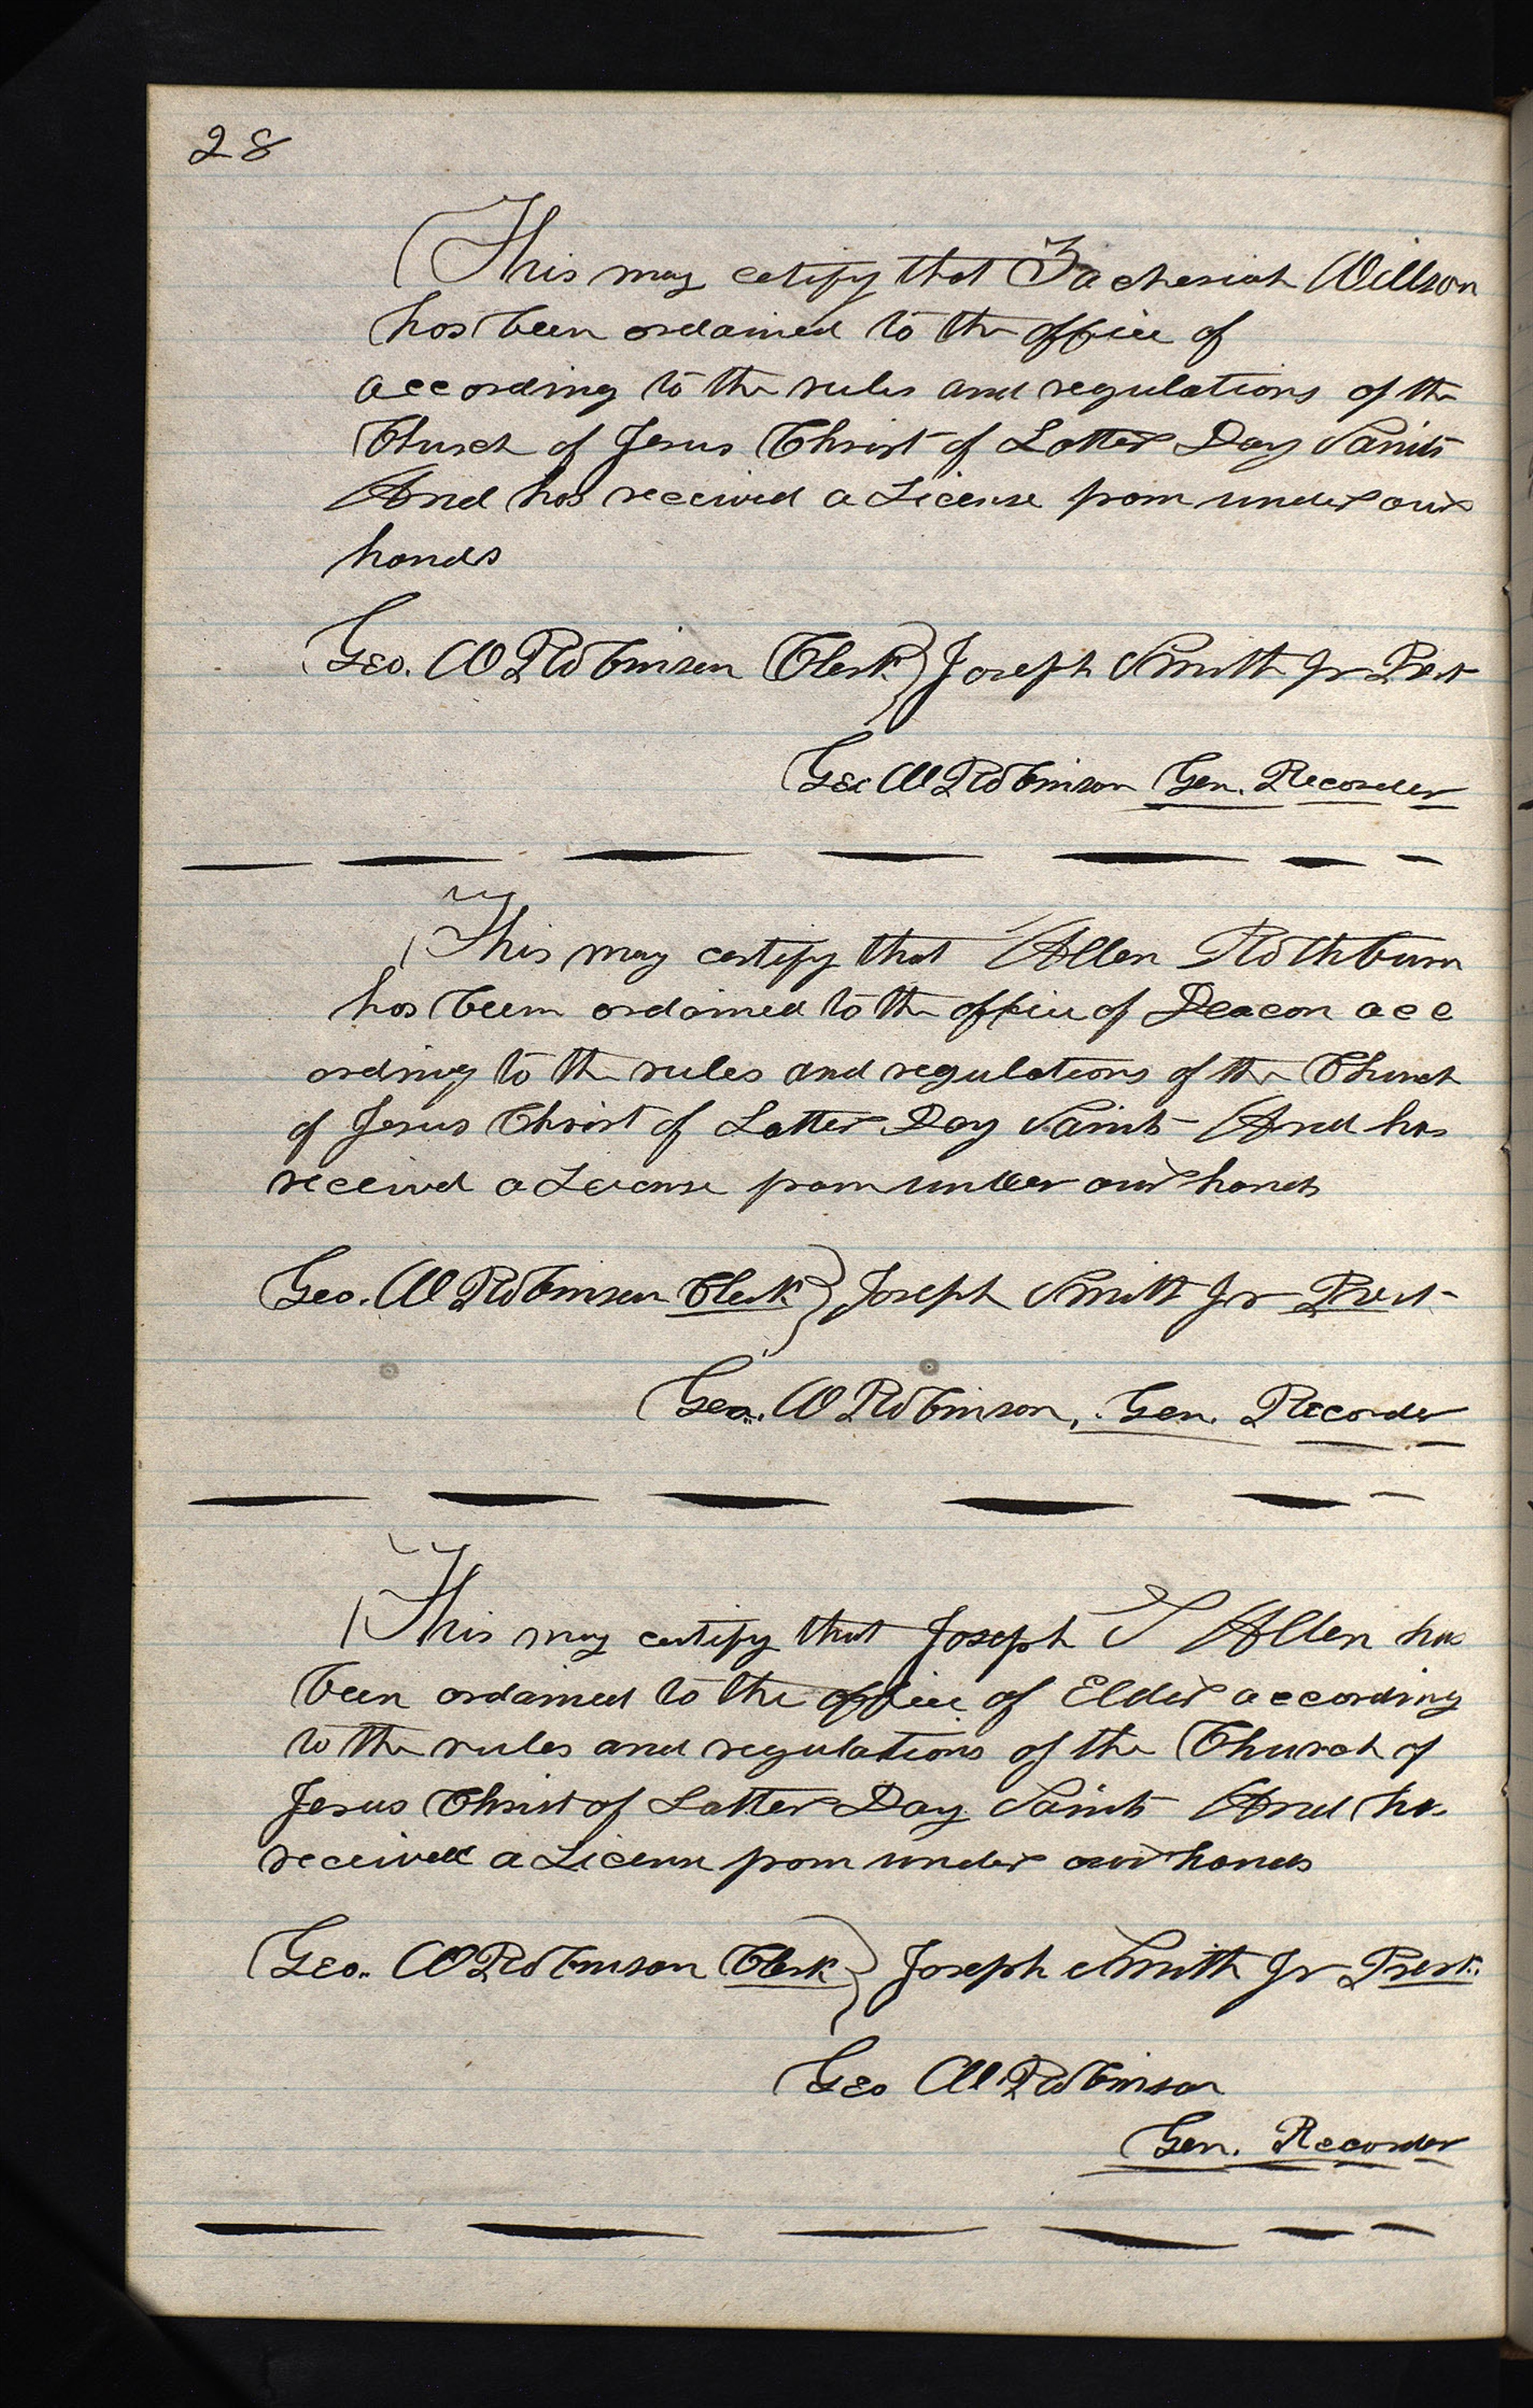 28
This may cetify that Zacheriah Willson
has been ordained to the office of
according to the rules and regulations of the
Church of Jesus Christ of Latter Day Saints
And has received a License from under our
hands
Geo. W Robinson Clerk } Joseph Smith Jr Prest
Geo W Robinson Gen. Recorder
This may certify that Allen Rothburn
has been ordained to the office of Deacon acc
ording to the rules and regulations of the Church
of Jesus Christ of Latter Day Saints And has
received a License from under our hands
Geo. W Robinson Clerk } Joseph Smith Jr Prest
Geo. W Robinson, Gen. Recorder
This may certify that Joseph S Allen has
been ordained to the office of Elder according
to the rules and regulations of the Church of
Jesus Christ of Latter Day Saints And has
received a License from under our hands
Geo. W Robinson Clerk } Joseph Smith Jr Prest.
Geo W Robinson
Gen. Recorder